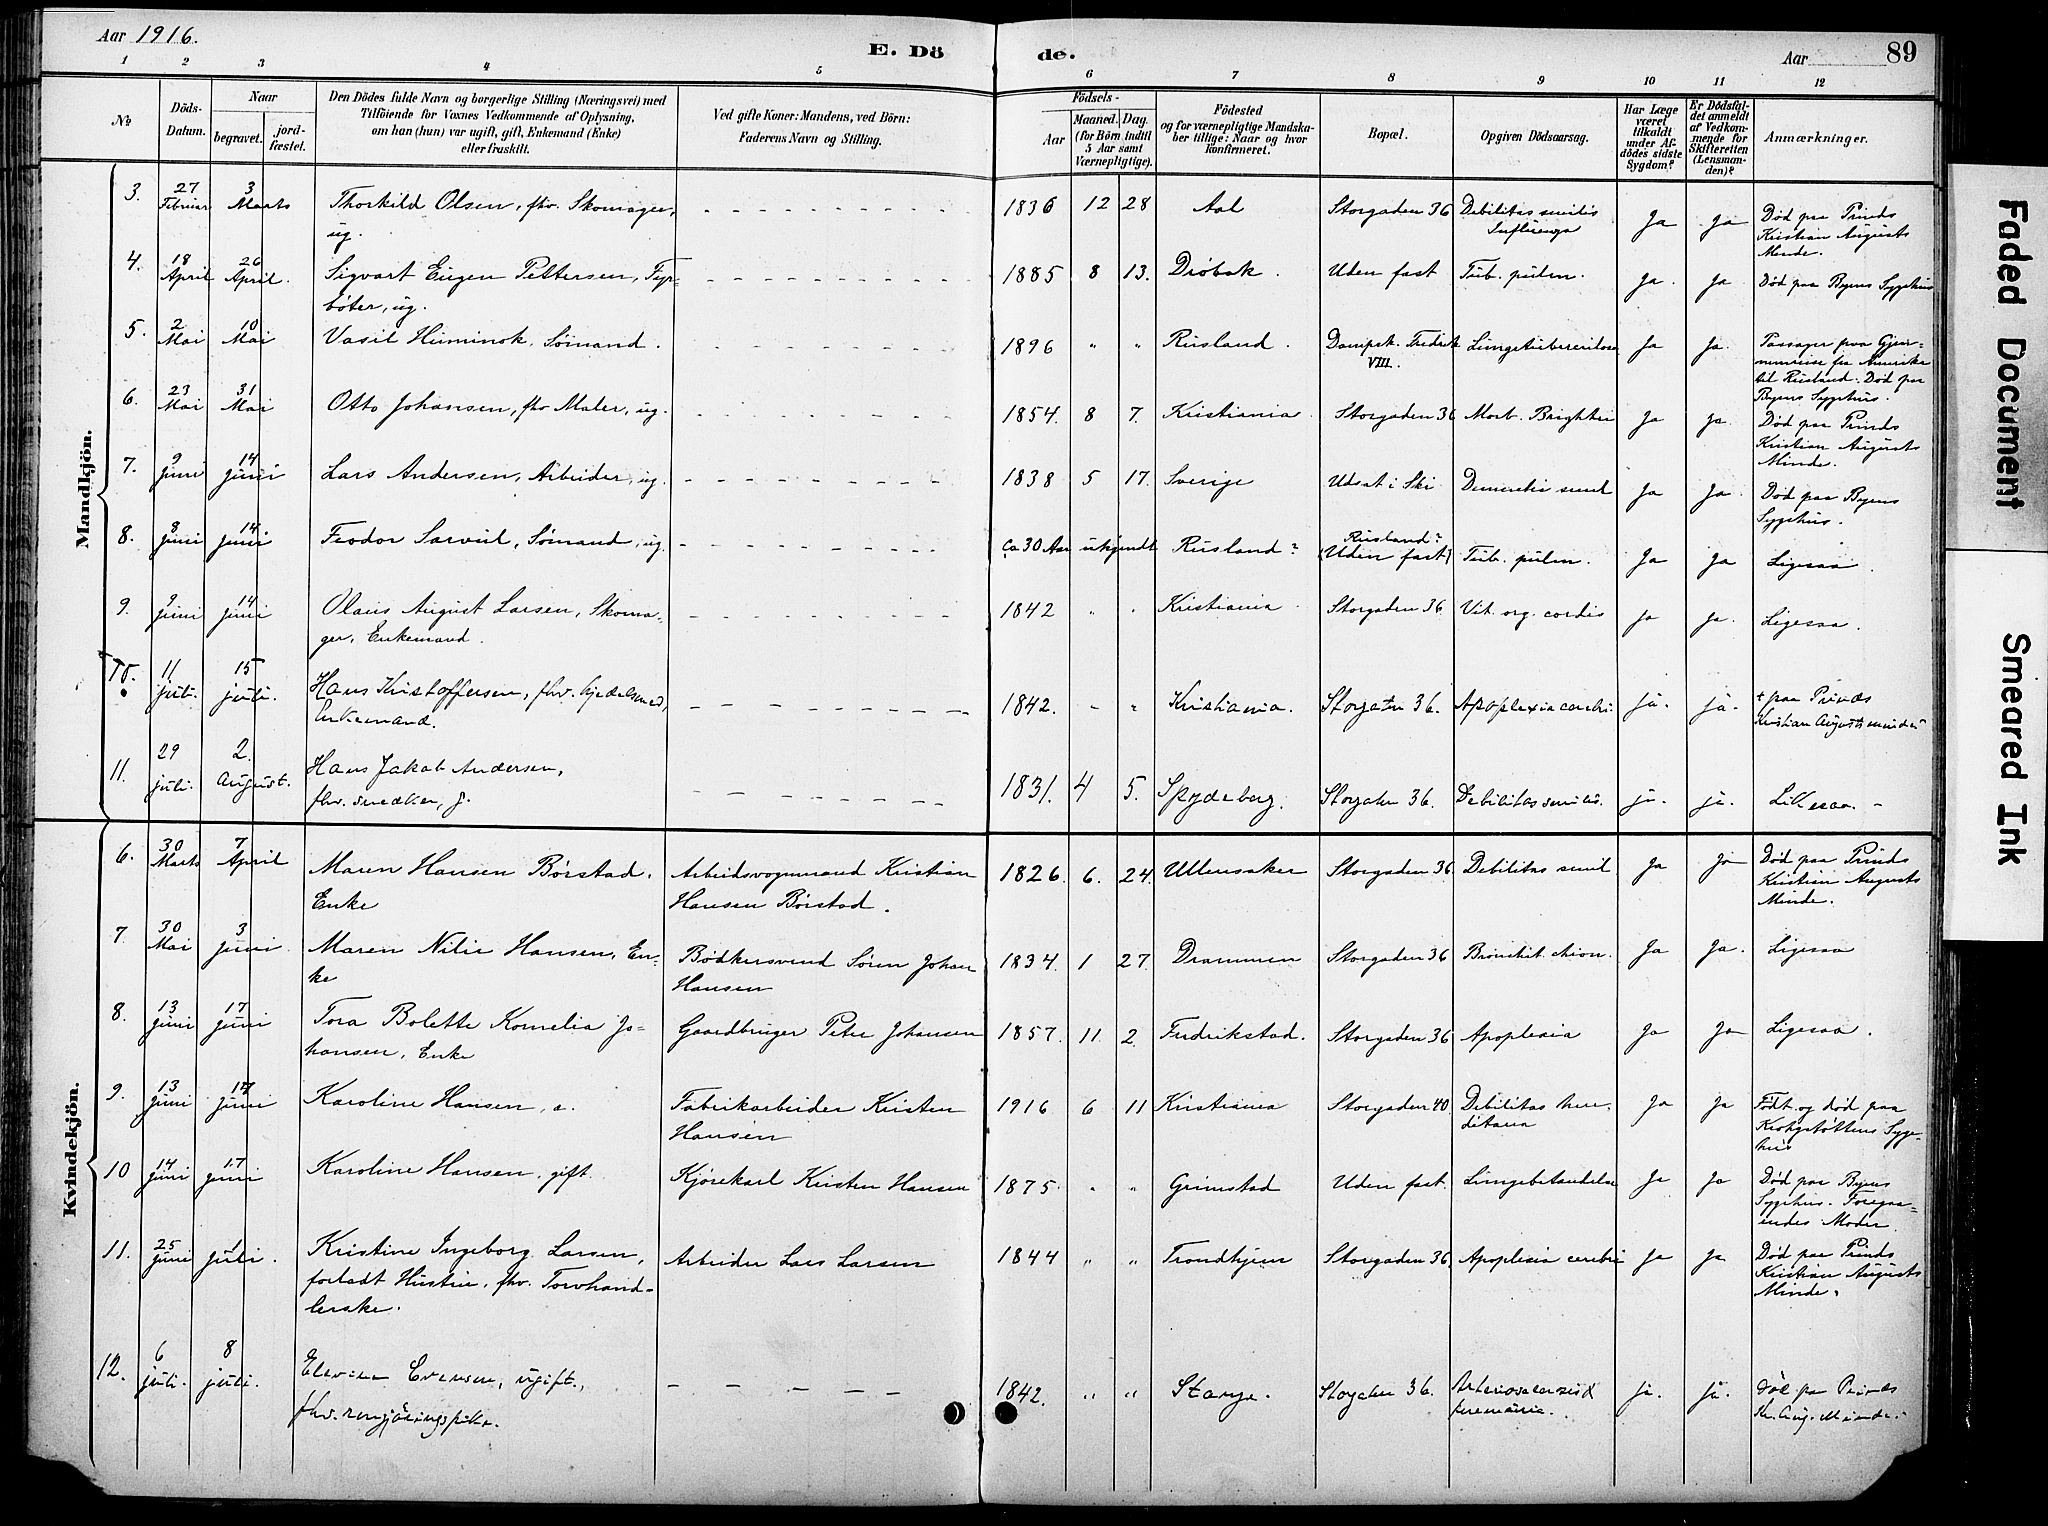 Aar 1916.
E. Dö
de.
Aar
89
1 2 3 4 5 6 7 8 9 10 11 12
No
Döds-
Datum.
Naar
begravet.
jord-
fæstet.
Den Dödes fulde Navn og borgerlige Stilling (Næringsvei) med
Tilföiende for Voxnes Vedkommende af Oplysning,
om han (hun) var ugift, gift, Enkemand (Enke)
eller fraskilt.
Ved gifte Koner: Mandens, ved Börn:
Faderens Navn og Stilling.
Födsels-
Aar
Maaned. Dag.
(for Börn indtil
5 Aar samt
Værnepligtige).
Födested
og for værnepligtige Mandska-
ber tillige: Naar og hvor
konfirmeret.
Bopæl.
Opgiven Dödsaarsag.
Har Læge
været
tilkaldt
under Af-
dödes sidste
Sygdom?
Er Dödsfal-
det anmeldt
af Vedkom-
mende for
Skifteretten
(Lensman-
den)?
Anmærkninger.
Mandkjön.
3. 27 Februar 3 Marts Thorkild Olsen, fhv. Skomager, ug. 1836 12 28 Aal Storgaden 36 Debilitas senilis Influenza Ja Ja Död paa Prinds Kristian Augusts Minde.
4. 18 April 26 April. Sigvart Eugen Pettersen, Fyr-
böter, ug. 1885 8 13. Dröbak. Uden fast Tub. pulm. Ja. Ja. Död paa Byens Sygehus
5. 2 Mai 10 Mai Vasil Huminok, Sömand. 1896 " " Rusland. Dampsk. Fredrik VIII. Lungetuberculose Ja Ja. Passager paa Gjen-
nemreise fra Amerika
til Rusland. Död paa
Byens Sygehus.
6. 23 Mai 31 Mai Otto Johansen, fhv Maler, ug. 1854. 8 7. Kristiania. Storgaden 36 Morb. Brightii Ja Ja. Död paa Prinds
Kristian Augusts
Minde.
7. 9 Juni 14 Juni Lars Andersen, Arbeider, ug. 1838 5 17. Sverige Udsat i Ski Dementia senil Ja Ja. Död paa Byens
Sygehus.
8. 8 Juni 14 Juni Feodor Sarvul, Sömand, ug. ca 30 Aar ukjendt Rusland? Rusland? (Uden fast) Tub. pulm. Ja Ja Ligesaa.
9. 9 Juni 14 Juni Olaus August Larsen, Skoma-
ger, Enkemand. 1842 " " Kristiania. Storgaden 36 Vit. org. cordis Ja Ja. Ligesaa.
10. 11. juli. 15 juli. Hans Kristoffersen, fhv. hjedelsmed,
Enkemand. 1842. - " Kristiania. Storgatn 36. Apoplexia cerebri. ja. ja. + paa Prinds
Kristian Augusts minde.
11. 29 juli. 2. August. Hans Jakob Andersen,
fhv. snedker, g. 1831. 4 5. Spydeberg. Storgatn 36. Debilitas senilis. ja. ja. Likesaa. -
Kvindekjön.
6. 30 Marts 7 April Maren Hansen Börstad,
Enke Arbeidsvognmand Kristian
Hansen Börstad. 1826. 6. 24. Ullensaker Storgaden 36. Debilitas senil Ja Ja Död paa Prinds
Kristian Augusts
Minde.
7. 30 Mai 3 Juni. Maren Nilie Hansen, En-
ke Bödkersvend Sören Johan
Hansen 1834. 1 27. Drammen Storgaden 36 Bronchit. chron. Ja Ja. Ligesaa
8. 13 Juni 17 Juni Tora Bolette Kornelia Jo-
hansen, Enke Gaardbruger Peter Johansen 1857. 11. 2. Fredrikstad. Storgaden 36 Apoplexia Ja Ja Ligesaa.
9. 13 Juni 17 Juni Karoline Hansen, Fabrikarbeider Kristen
Hansen 1916 6 11 Kristiania Storgaden 40 Debilitas here-
ditaria Ja Ja Födt og död paa
Krohgstöttens Syge-
hus
10 14 Juni 17 Juni Karoline Hansen, gift. Kjörekarl Kristen Hansen 1875. " " Grimstad Uden fast. Lungebetændelse Ja Ja Död paa Byens
Sygehus. Foregaa-
endes Moder.
11. 25 Juni 1 Juli. Kristine Ingeborg Larsen,
forladt Hustru, fhv. Torvhand-
lerske. Arbeider Lars Larsen 1844 " " Trondhjem Storgaden 36. Apoplexia cerebri Ja Ja Död paa Prinds
Kristian Augusts
Minde.
12. 6 juli. 8 juli. Evensen, ugift,
fhv. rengjöringspike. 1842. " " Stange. Storgatn 36. Arteriosclerosis &
ja. ja. död paa Prinds
Kr. Aug. Minde.
Faded Document
Smeared Ink